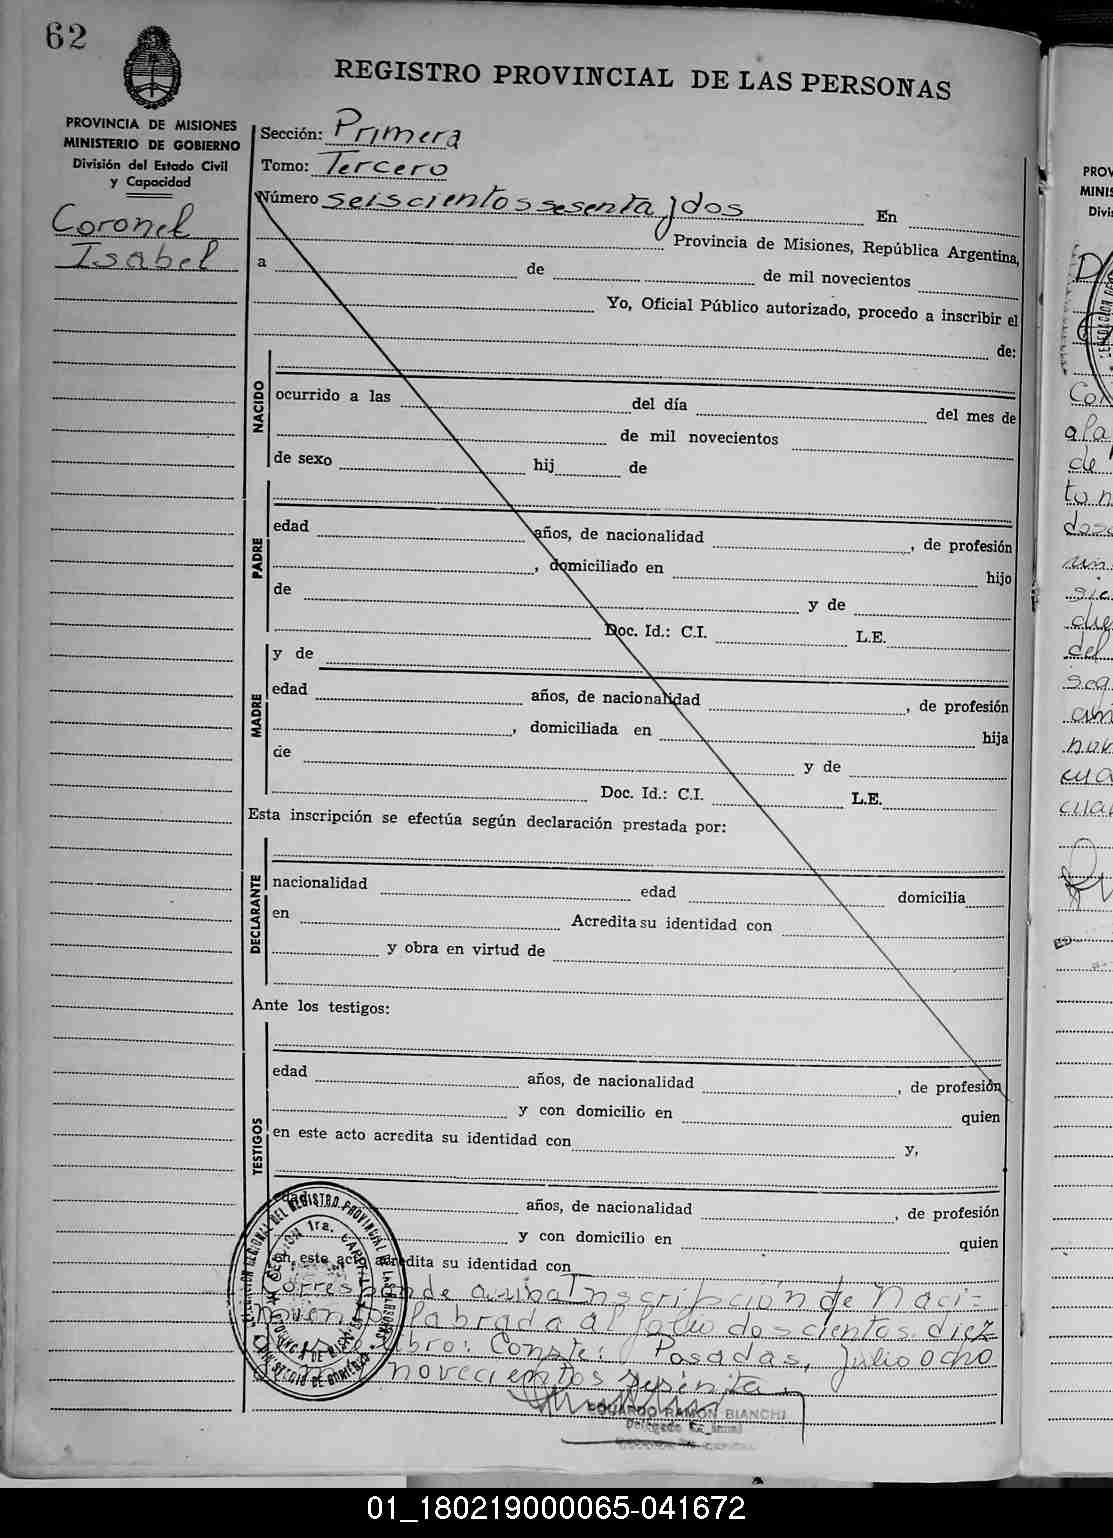 62
REGISTRO PROVINCIAL DE LAS PERSONAS
PROVINCIA DE MISIONES
MINISTERIO DE GOBIERNO
División del Estado Civil
y Capacidad
Coronel
Isabel
Sección: Primera
Tomo: Tercero
Número seiscientos sesenta y dos En
Provincia de Misiones, República Argentina,
a de de mil novecientos
Yo, Oficial Público autorizado, procedo a inscribir el
de:
NACIDO
ocurrido a las del día del mes de
de mil novecientos
de sexo hij de
PADRE
edad años, de nacionalidad , de profesión
, domiciliado en hijo
de y de
Doc. Id.: C.I. L.E.
y de
MADRE
edad años, de nacionalidad , de profesión
, domiciliada en hija
de y de
Doc. Id.: C.I. L.E.
Esta inscripción se efectúa según declaración prestada por:
DECLARANTE
nacionalidad edad domicilia
en Acredita su identidad con
y obra en virtud de
Ante los testigos:
TESTIGOS
edad años, de nacionalidad , de profesión
y con domicilio en quien
en este acto acredita su identidad con y,
edad años, de nacionalidad , de profesión
y con domicilio en quien
en este acto acredita su identidad con
arriba Inscripción de Naci=
labrada al folio doscientos diez
Libro: Conste: Posadas, Julio Ocho
novecientos
EDUARDO RAMON BIANCHI
PROV
MINIS
Divi
01_180219000065-041672